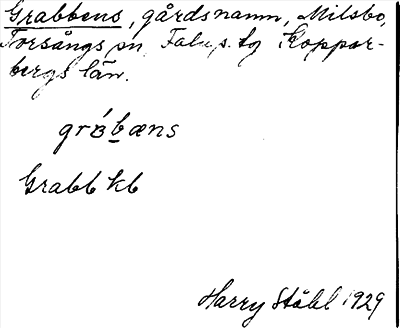 Grabbens, gårdsnamn, Milsbo,
Torsångs sn, Falu s. tg Koppar-
bergs län.
gràbæns
Grabb kb
Harry Ståhl 1929